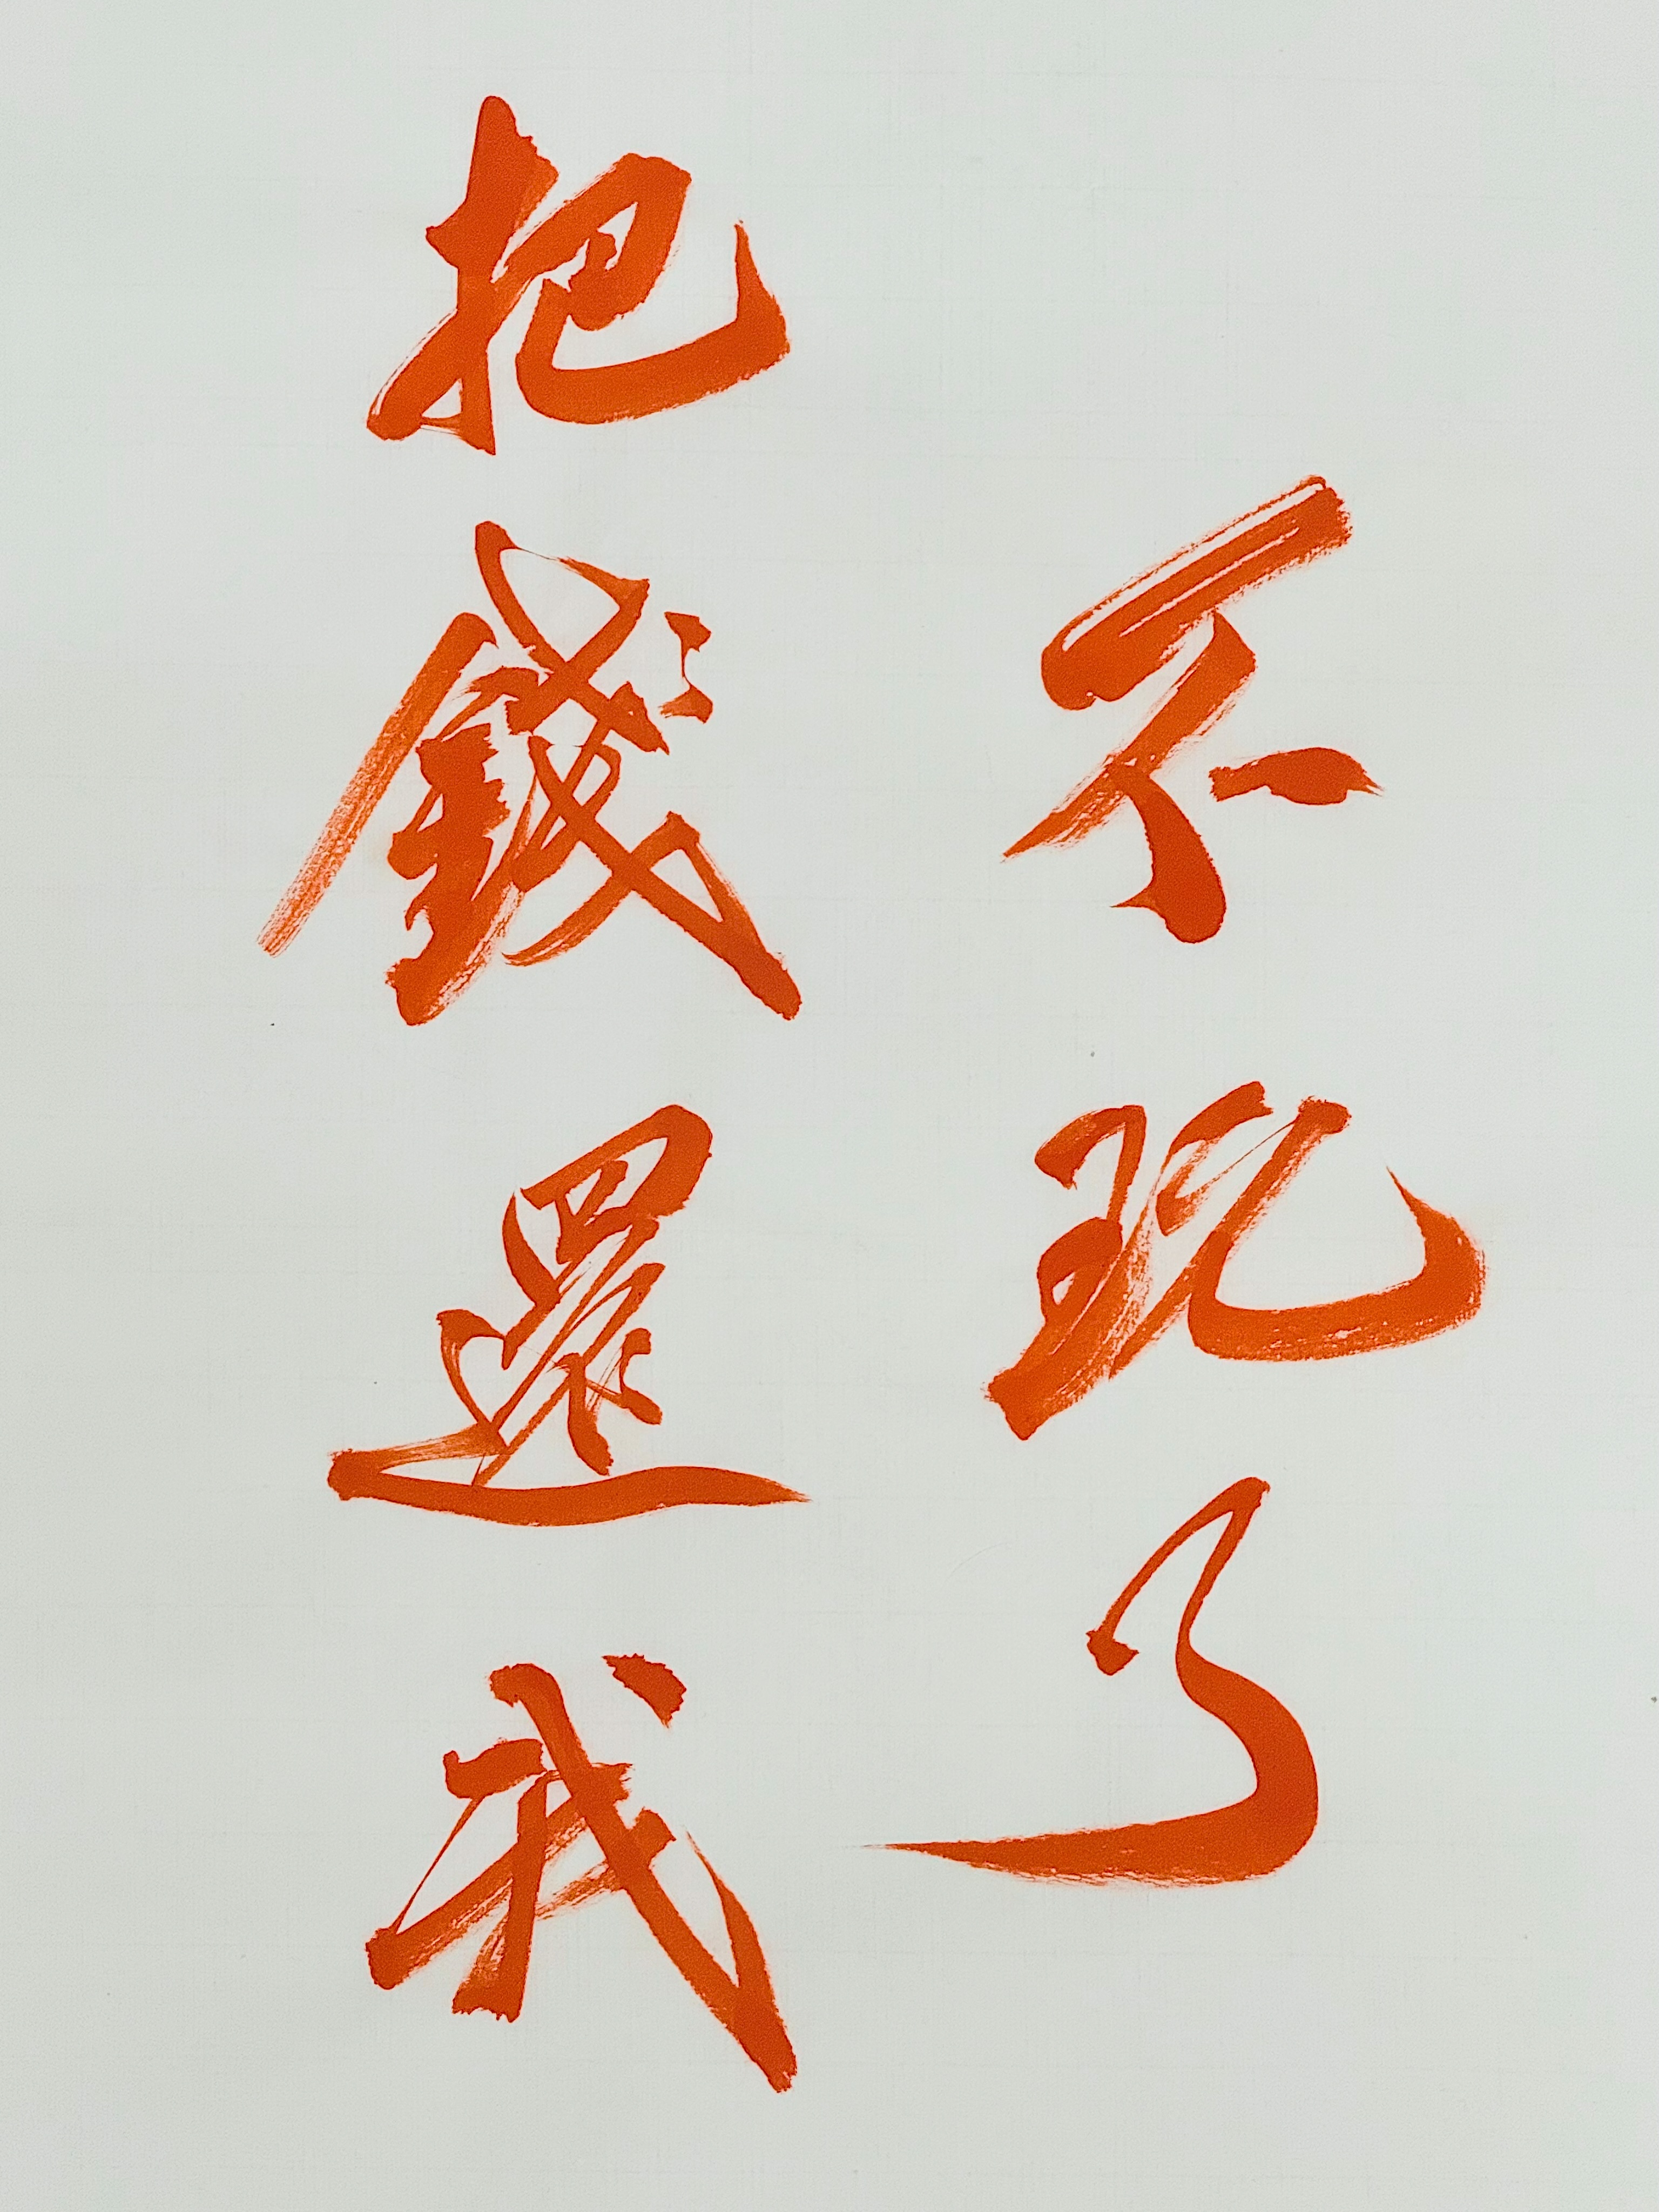 不玩了
把錢還我